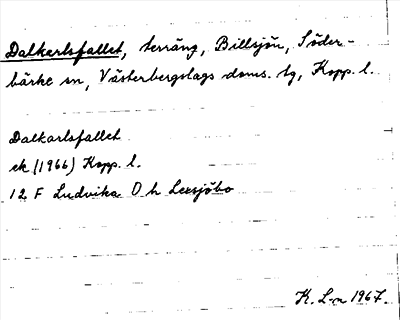 Dalkarlsfallet, terräng, Billsjön, Söder-
bärke sn, Västerbergslags doms. tg, Kopp. l.
Dalkarlsfallet
ek (1966) Kopp. l.
12 F Ludvika O h Leesjöbo
K. L-n 1967.